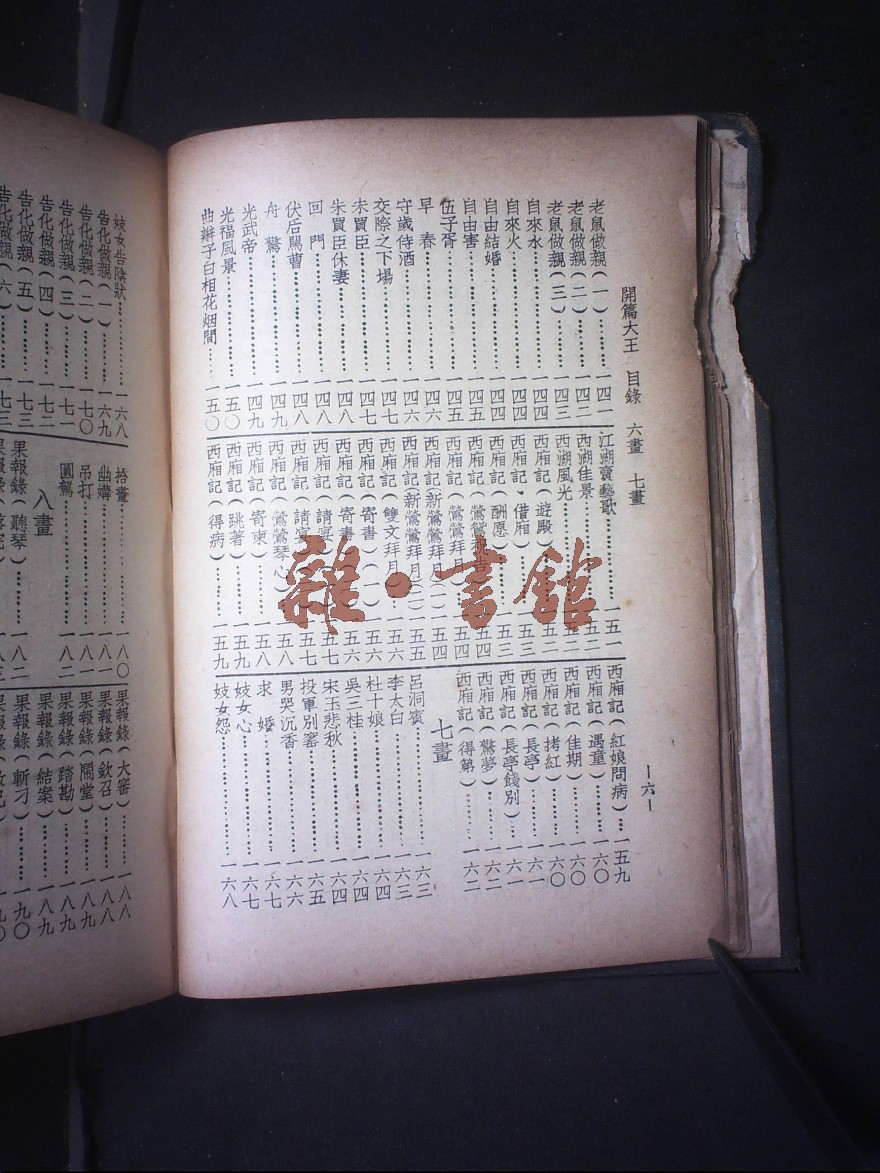 開篇大王 目錄 六畫 七畫 —六—
老鼠做親(一)……一四一
老鼠做親(二)……一四二
老鼠做親(三)……一四三
自來水……一四四
自來火……一四四
自由結婚……一四四
自由害……一四五
伍子胥……一四五
早春……一四六
守歲侍酒……一四六
交際之下場……一四七
朱買臣……一四七
朱買臣休妻……一四八
回門……一四八
伏后罵曹……一四八
舟驚……一四九
光武帝……一四九
光福風景……一五〇
曲辮子白相花烟間……一五〇
江湖賣藝歌……一五一
西湖佳景……一五二
西湖風光……一五二
西廂記(遊殿)……一五二
西廂記(借廂)……一五三
西廂記(酬愿)……一五三
西廂記(鶯鶯祝告)……一五四
西廂記(鶯鶯拜月)……一五四
西廂記(新鶯鶯拜月)(一)一五四
西廂記(新鶯鶯拜月)(二)一五五
西廂記(雙文拜月)……一五六
西廂記(寄書)(一)……一五六
西廂記(寄書)(二)……一五六
西廂記(請宴)(一)……一五七
西廂記(請宴)(二)……一五七
西廂記(鶯鶯琴心)……一五八
西廂記(寄柬)……一五八
西廂記(跳著)……一五九
西廂記(得病)……一五九
西廂記(紅娘問病)……一五九
西廂記(遇童)……一六〇
西廂記(佳期)……一六〇
西廂記(拷紅)……一六〇
西廂記(長亭)……一六一
西廂記(長亭餞別)……一六一
西廂記(驚夢)……一六二
西廂記(得第)……一六二
七畫
呂洞賓……一六三
李太白……一六三
杜十娘……一六四
吳三桂……一六四
宋玉悲秋……一六四
投軍別窰……一六五
男哭沉香……一六六
求婚……一六七
妓女心……一六七
妓女怨……一六八
妓女告陰狀……一六八
告化做親(一)……一六九
告化做親(二)……一七〇
告化做親(三)……一七一
告化做親(四)……一七二
告化做親(五)……一七三
告化做親(六)……一七三
拾畫……一八〇
幽媾……一八一
吊打……一八二
圓駕……一八二
八畫
果報錄(聽琴……一八二
果報錄(大審)……一八八
果報錄(欽召)……一八八
果報錄(鬧堂)……一八九
果報錄(踏勘)……一八九
果報錄(結案)……一八九
果報錄(斬刁)……一九〇
雜·書館